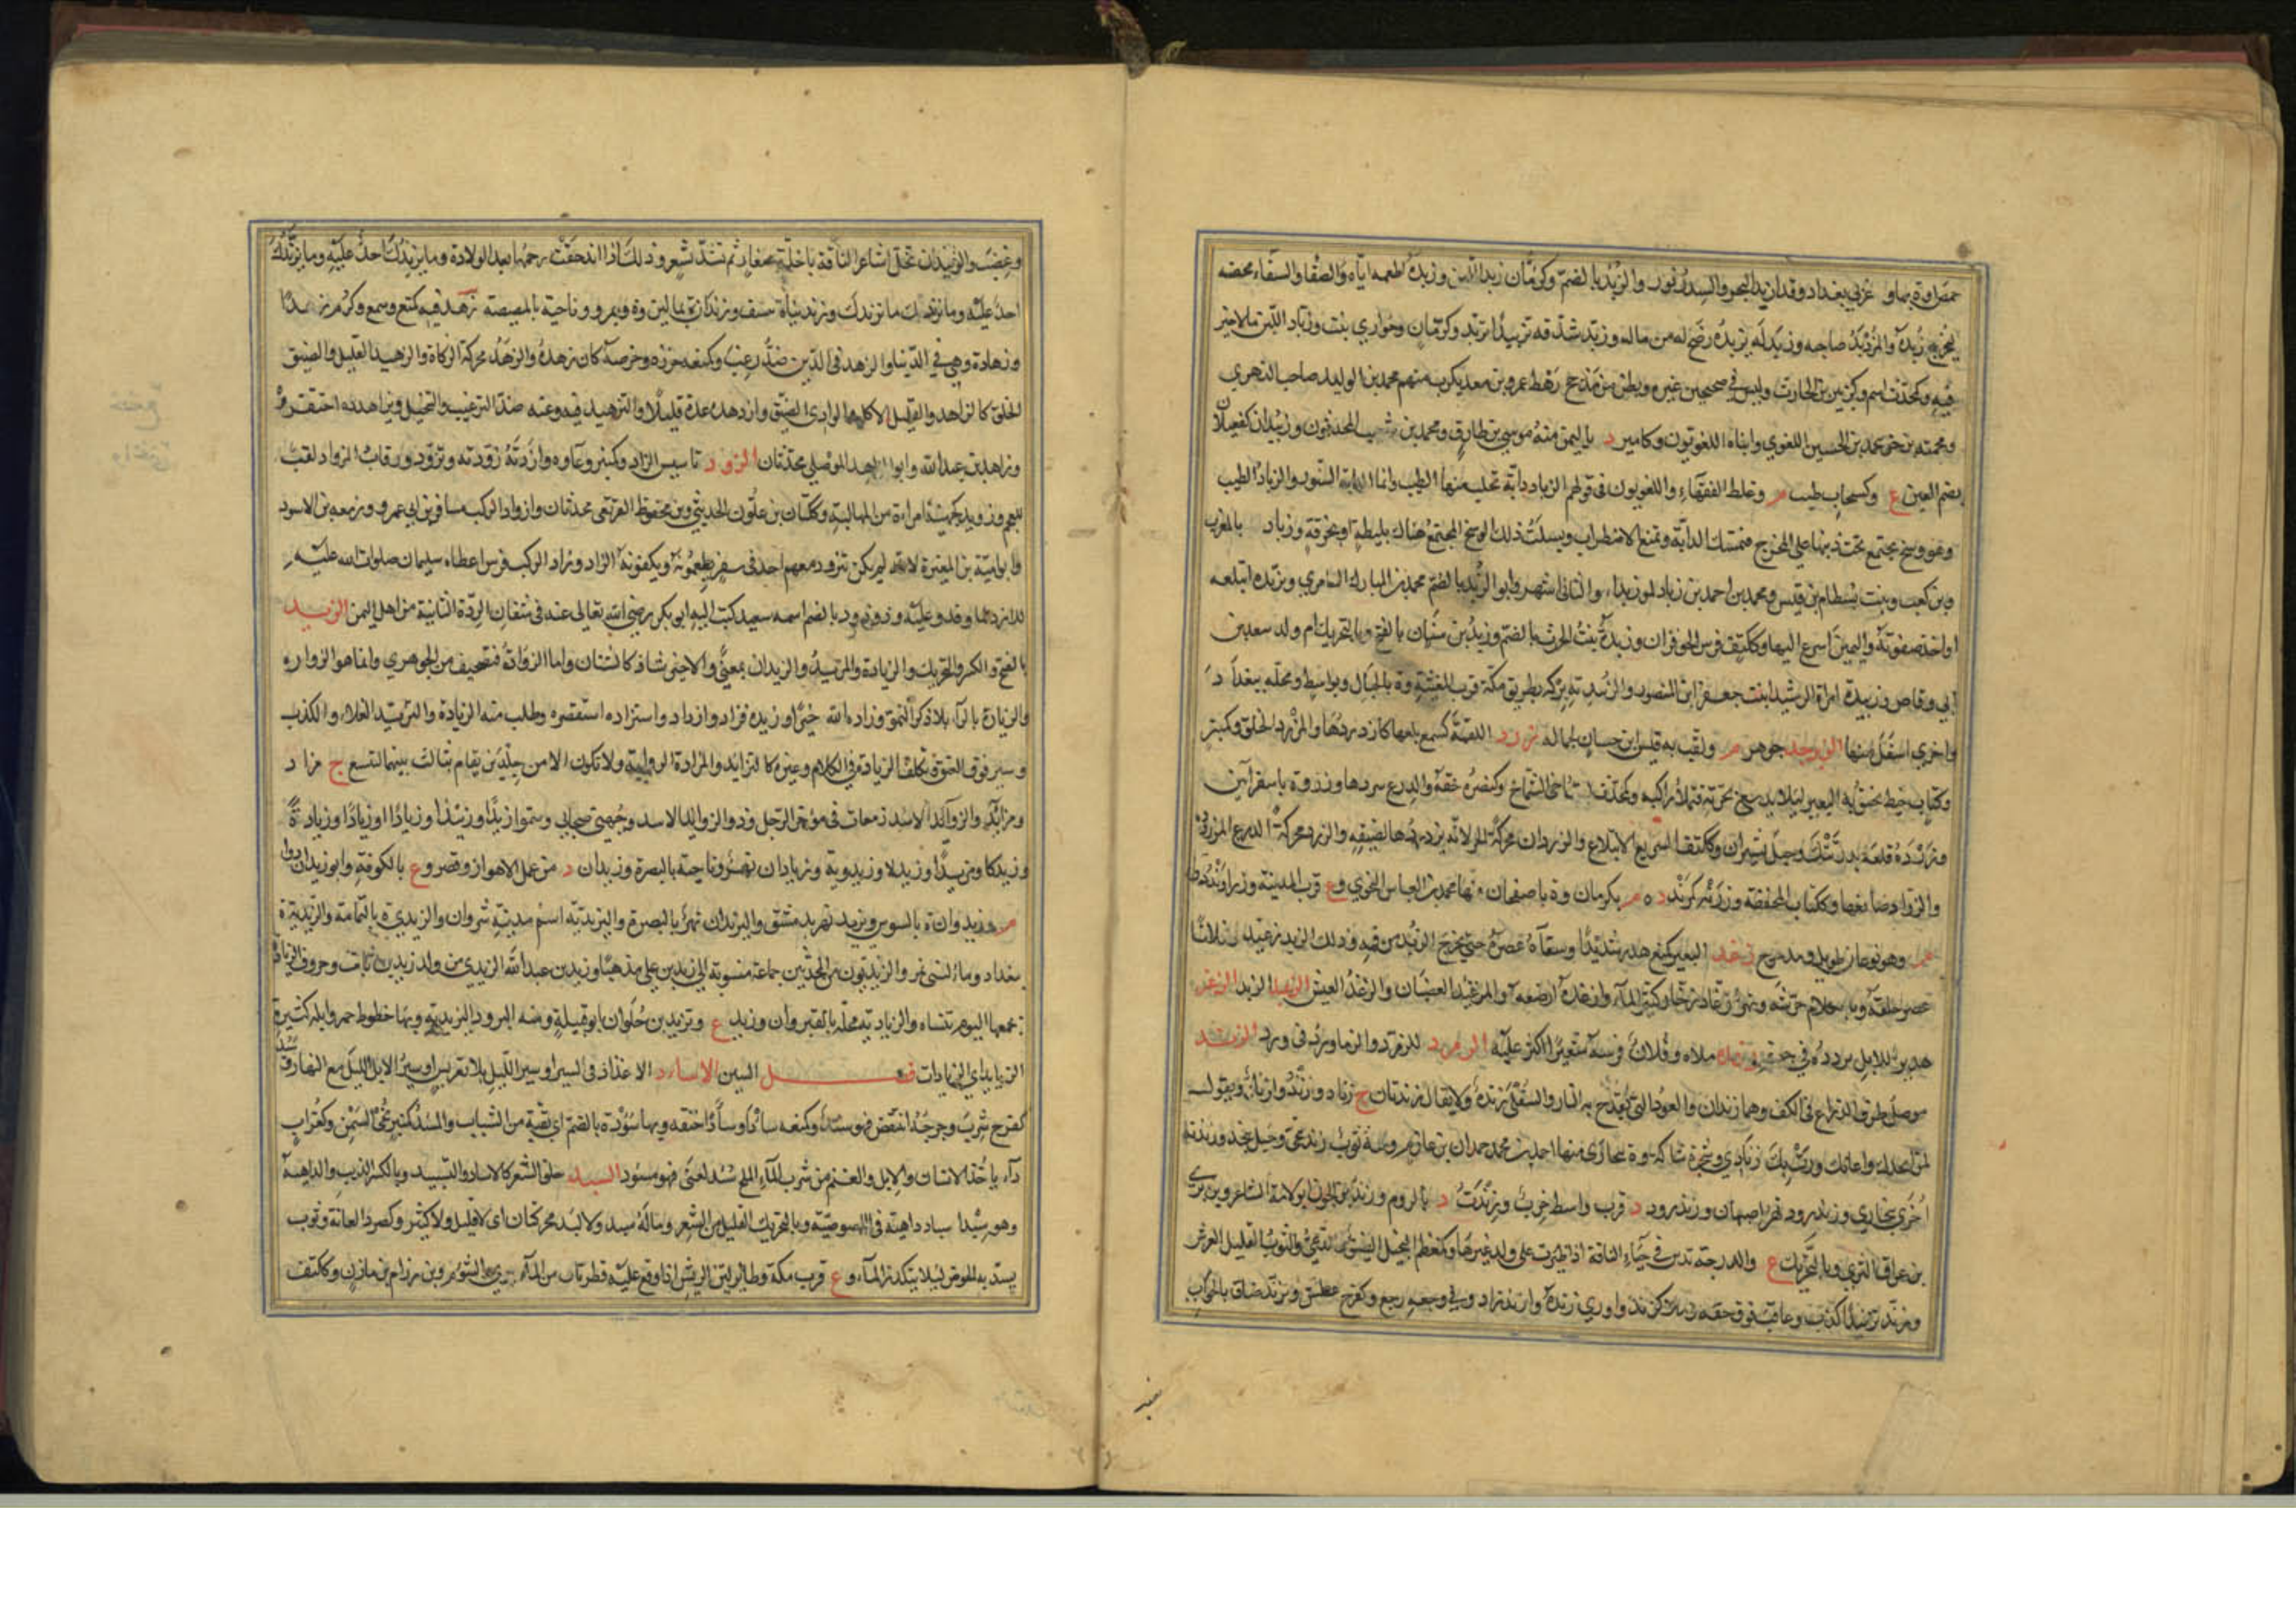 حمص او ة بها و ع غربي بغداد وقد ازبد البحر والسدر نور والزبد بالضم وكرمان زبد اللبن وزبده اطعمه اياه والسقاء مخضه
ليخرج زبده والمزدبد صاحبه وزبد له يزبده رضخ له من ماله وزبد شدقه تزبيدا تزبد وكرمان وحواري نبت وزباد اللبن مالا خير
فيه وكمحدث اسم وكزبير بن الحارث وليس في صحيحين غيره وبطن من مذحج رهط عمرو بن معديكرب منهم محمد بن الوليد صاحب الزهري
ومحمية بن جزء محمد بن الحسين اللغوي وابناه اللغويون وكامير د باليمن منه موسى بن طارق ومحمد بن شعيب المحدثون وزبيدان كفيعلان
بضم العين ع وكسحاب طيب م وغلط الفقهاء واللغويون في قولهم الزباد دابة تحلب منها الطيب وانما الدابة السنور والزباد الطيب
وهو وسخ يجتمع تحت ذنبها على المخرج فتمسك الدابة وتمنع الاضطراب ويسلت ذلك الوسخ المجتمع هناك بليطة او بخرقة وزباد بالمغرب
وبن كعب وبنت بسطام بن قيس ومحمد بن احمد بن زباد والثاني اشهر وابو الزبد بالضم محمد بن المبارك العامري وتزبده ابتلعه
او اخذ صفوته واليمين اسرع اليها وككتف فرس الحوفزان وزبدة بنت الحرث بالضم وزبد بن سنان بالفتح وبالتحريك ام ولد سعد بن
ابي وقاص وزبيدة امراة الرشيد ابنت جعفر ابن المنصور والزبيدية بركة بطريق مكة قرب المغيثة وة بالجبال وبواسط ومحلة ببغداد
واخرى اسفل منها الزبرجد جوهر م ولقب به قيس بن حسان لجماله زرد اللقمة كسمع بلعها كازدردها والمزرد الحلق وكمنبر
وككتاب خيط يخنق به البعير لئلا يدسع بجرته فيملأ راكبه وكمحدث اخي الشماخ وكنصره خنقه والدرع سردها وزروة باسفراين
وزردة قلعة بدرتنك وجبل بشيراز وككتف السريع الابتلاع والزردان محركة الحر لانه يزدرد الايور لضيقه والزرد محركة الدرع المزرودة
والزراد صانعها وككتاب المخنقة وزرند كمرند د م بكرمان وة باصفهان منها محمد بن العباس النحوي وع قرب المدينة
وهو نوعان طويل ومدحرج زغد البعير كمنع هدر شديدا وسقاءه عصره حتى يخرج الزبد من فيه وذلك الزبد زغيد
عصر حلقه وبالكلام حرشه ونهر زغاد زخار وكثير الماء وازغده ارضعه والمزغئد الغضبان والزغد العيش الزبد الزغد
هدير للابل يردده في جوفه ملأه وفلان فرسه شعيرا اكثر عليه الزمرد للزمرذ والزماورد في ورد الزند
موصل طرف الذراع في الكف وهما زندان والعود الذي يقدح به النار والسفلى زندة ولا يقال زندتان ج زناد وازند وازناد ويقول
لمن انجدك واعانك ورت بك زنادي وشجرة شاكة وة ببخارى منها احمد بن محمد حمدان بن عازم ومنه ثوب زندنجي وجبل بنجد وزندنة
اخرى ببخاري وزندرود نهر اصبهان وزندرود د قرب واسط خرب وزندة د بالروم وزند بن الجون ابو دلامة الشاعر
بن عراق الثري وبالتحريك ع والدرجة تدس في حياء الناقة اذا ظئرت على ولد غيرها وكمعظم البخيل الضيق والدعي والثوب القليل العرض
وزند تزنيدا كذب وعاقب فوق حقه وملأ كزند واورى زنده وازند زاد وفي وجعه رجع وكفرح عطش وتزند ضاق بالجواب
وغضب والتزنيد ان تخل اشاعر الناقة باخلة صغار ثم تشد بشعر وذلك اذا اندحقت رحمها بعد الولادة وما يزندك احد عليه وما يزندك
احد عليه وما زندك ما تزيدك وزند نيا ة بنسف وزندان ة بمالين وة وبمرو وناحية بالمصيصة زهد فيه كمنع وسمع وكرم زهدا
وزهادة وهي في الدنيا والزهد في الدين ضد رغب وكمنعه حزره وخرصه كان زهده والزهد محركة الزكاة والزهيد القليل والضيق
الخلق كالزاهد والقليل الاكل والوادي الضيق وازدهده عده قليلا والتزهيد فيه وعنه ضد الترغيب والتبخيل وتزاهدوه احتقروه
وزاهد بن عبدالله وابو الزاهد الموصلي محدثان الزود تأسيس الزاد وكمنبر وعاؤه وازدته زودته وتزود ورقاب المزاود لقب
للعجم وزويدة كجهينة امراة من المهالبة وككتان بن علون الحديثي وبن محفوظ القرتفي محدثان وازواد الركب مسافر بن ابي عمرو وزمعة بن الاسود
وابو امية بن المغيرة لانه لم يكن يتزود معهم احد في سفر يطعمونه ويكفونه الزاد وزاد الركب فرس اعطاه سليمان صلوات الله عليه
للازد لما وفدو عليه وذوزود بالضم اسمه سعيد كتب اليه ابو بكر رضي الله تعالى عنه في شان الردة الثانية من اهل اليمن الزيد
بالفتح والكسر والتحريك والزيادة والمزيد والزيدان بمعنى والاخير شاذ كالشنان واما الزوادة فتصحيف من الجوهري وانما هو الزوارة
والزيارة بالراء بلا ذكر النمو وزاده الله خيرا وزيده فزاد وازداد واستزاده استقصره وطلب منه الزيادة والتزيد الغلاء والكذب
وسير فوق العنق وتكلف الزيادة في الكلام وغيره كالتزايد والمزادة الراوية ولا تكون الا من جلدين يقام بثالث بينهما لتتسع ج مزاد
ومزايد والزوائد الاسد زمعات في مؤخر الرحل وذو الزوايد الاسد وجهني صحابي وسموا زيدا وزييدا وزيادا وزيادة
وزيدكا ومزيدا وزيدلا وزيدوية وزيادان نهر وناحية بالبصرة وزيدان د من عمل الاهواز وقصر وع بالكوفة وابو زيدان دواء
م وزيدوان ة بالسوس ويزيد نهر بدمشق واليزدان نهر بالبصرة واليزيدية اسم مدينة شروان والزيدي ة باليمامة والزيدية ة
ببغداد وماء لبني نمير والزيديون من المحدثين جماعة منسوبة الى زيد بن علي مذهبا وزيد بن عبدالله الزيدي من ولد زيد بن ثابت وحروف الزيادة
يجمعها اليوم تنساه والزيادية محلة بالقيروان وزيد ع وتزيد بن حلوان ابو قبيلة ومنه البرود التزيدية وبها خطوط حمر وابل كثيرة
الزيايد اي الزيادات فصل السين الاساد الاغذاذ في السير او سير الليل بلا تعريس او سير الابل الليل مع النهار
كفرح شرب وجرحه انتقض فهو سئد وكمنعه سأدا وسأدا خنقه وبها سؤدة بالضم اي بقية من الشباب والمسئد كمنبر نحي السمن وكغراب
داء ياخذ الانسان والابل والغنم من شرب الماء الملح سئد كعني فهو مسؤد السبد حلق الشعر كالاسباد والتسبيد وبالكسر الذيب والداهية
وهو سبد اسباد داهية في اللصوصية وبالتحريك القليل من الشعر وماله سبد ولا لبد محركتان اي لا قليل ولا كثير وكصرد العانة وثوب
يسد به الحوض لئلا يتكدر الماء وع قرب مكة وطائر لين الريش اذا وقع عليه قطرتان من الماء جرى والشؤم وبن رزام بن مازن وككتف